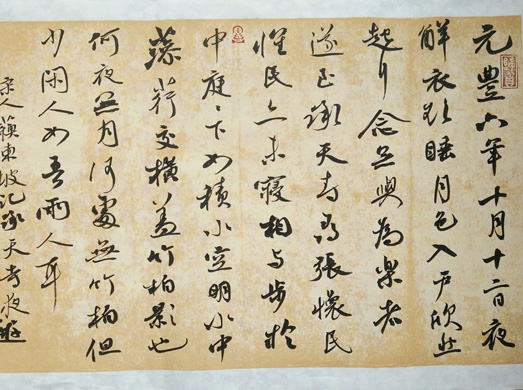 元豐六年十月十二日夜
解衣欲睡月色入戶欣然
起行念无與為樂者
遂至承天寺尋張懷民
懷民亦未寢相与步於
中庭〻下如積水空明水中
藻荇交橫蓋竹柏影也
何夜无月何處無竹柏但
少閑人如吾兩人耳
宋人蘇東坡記承天寺夜遊